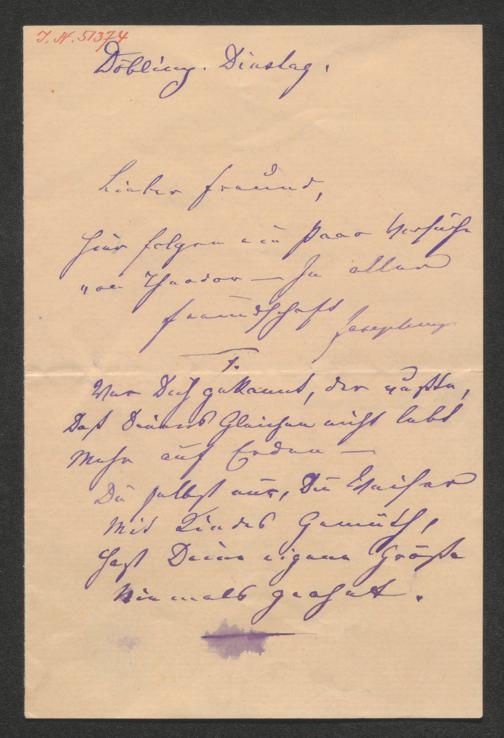 I. N. 51374
Döbling. Dinstag.
Lieber Freund,
hier folgen ein paar Versuche
von Theodor — In aller
Freundschaft Josephine
1.
Wer Dich gekannt, der wußte,
Daß Deines Gleichen nicht lebt
Mehr auf Erden —
Du selbst nur, Du
Mit Kindes Gemüth,
Hast Deine eigene Größe
Niemals geahnt.